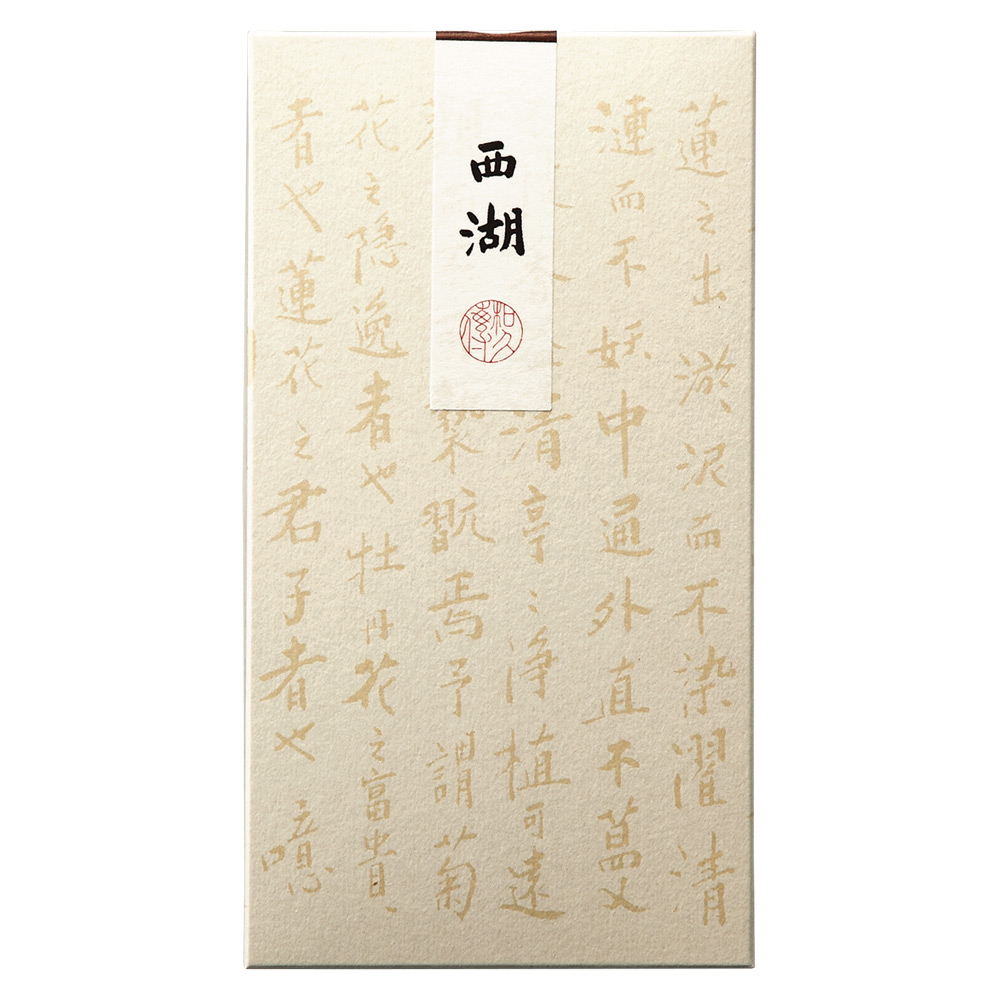 西湖
和久傳
蓮之出淤泥而不染濯清
漣而不妖中通外直不蔓
清亭〻淨植可遠
褻翫焉予謂菊
花之隠逸者也牡丹花之富貴
者也蓮花之君子者也噫